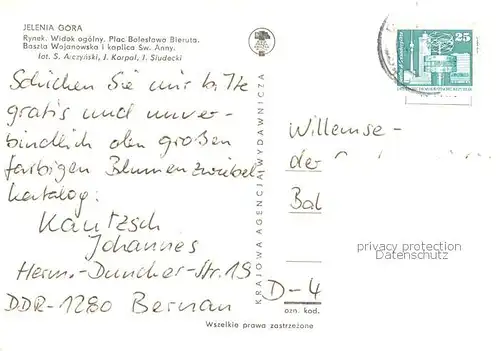 JELENIA GÓRA
Rynek. Widok ogólny. Plac Bolesława Bieruta.
Baszta Wojanowska i kaplica Św. Anny.
fot. S. Arczyński, J. Korpal, I. Siudecki
Schicken Sie mir bitte
gratis und unver-
bindlich den großen
farbigen Blumenzwiebel
katalog:
Kautzsch
Johannes
Herm.-Duncker-Str. 19
DDR-1280 Bernau
KRAJOWA AGENCJA WYDAWNICZA
25
Willemse-
der
Bal
privacy protection
Datenschutz
D-4
ozn. kod.
Wszelkie prawa zastrzeżone